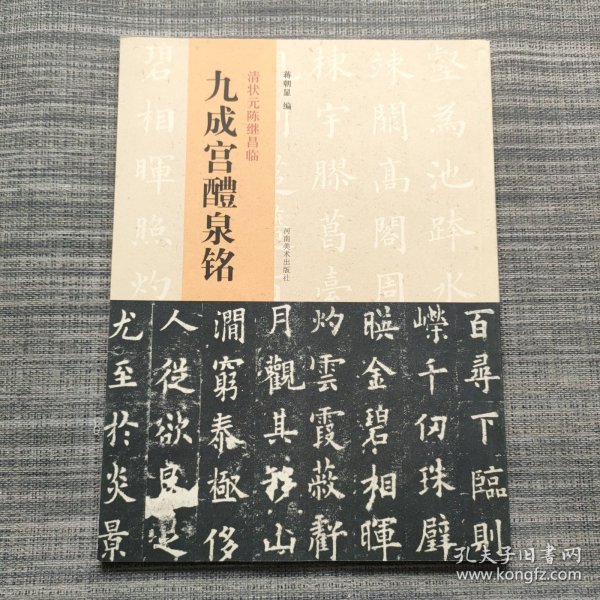 清状元陈继昌临
九成宫醴泉铭
蒋朝显 编
河南美术出版社
壑為池跨水
竦闕高閣周
棟宇膠葛臺
碧相暉照灼
百尋下臨則
嶸千仞珠璧
暎金碧相暉
灼雲霞蔽虧
月觀其移山
澗窮泰極侈
人從欲良足
尤至於炎景
孔夫子旧书网
www.kongfz.com